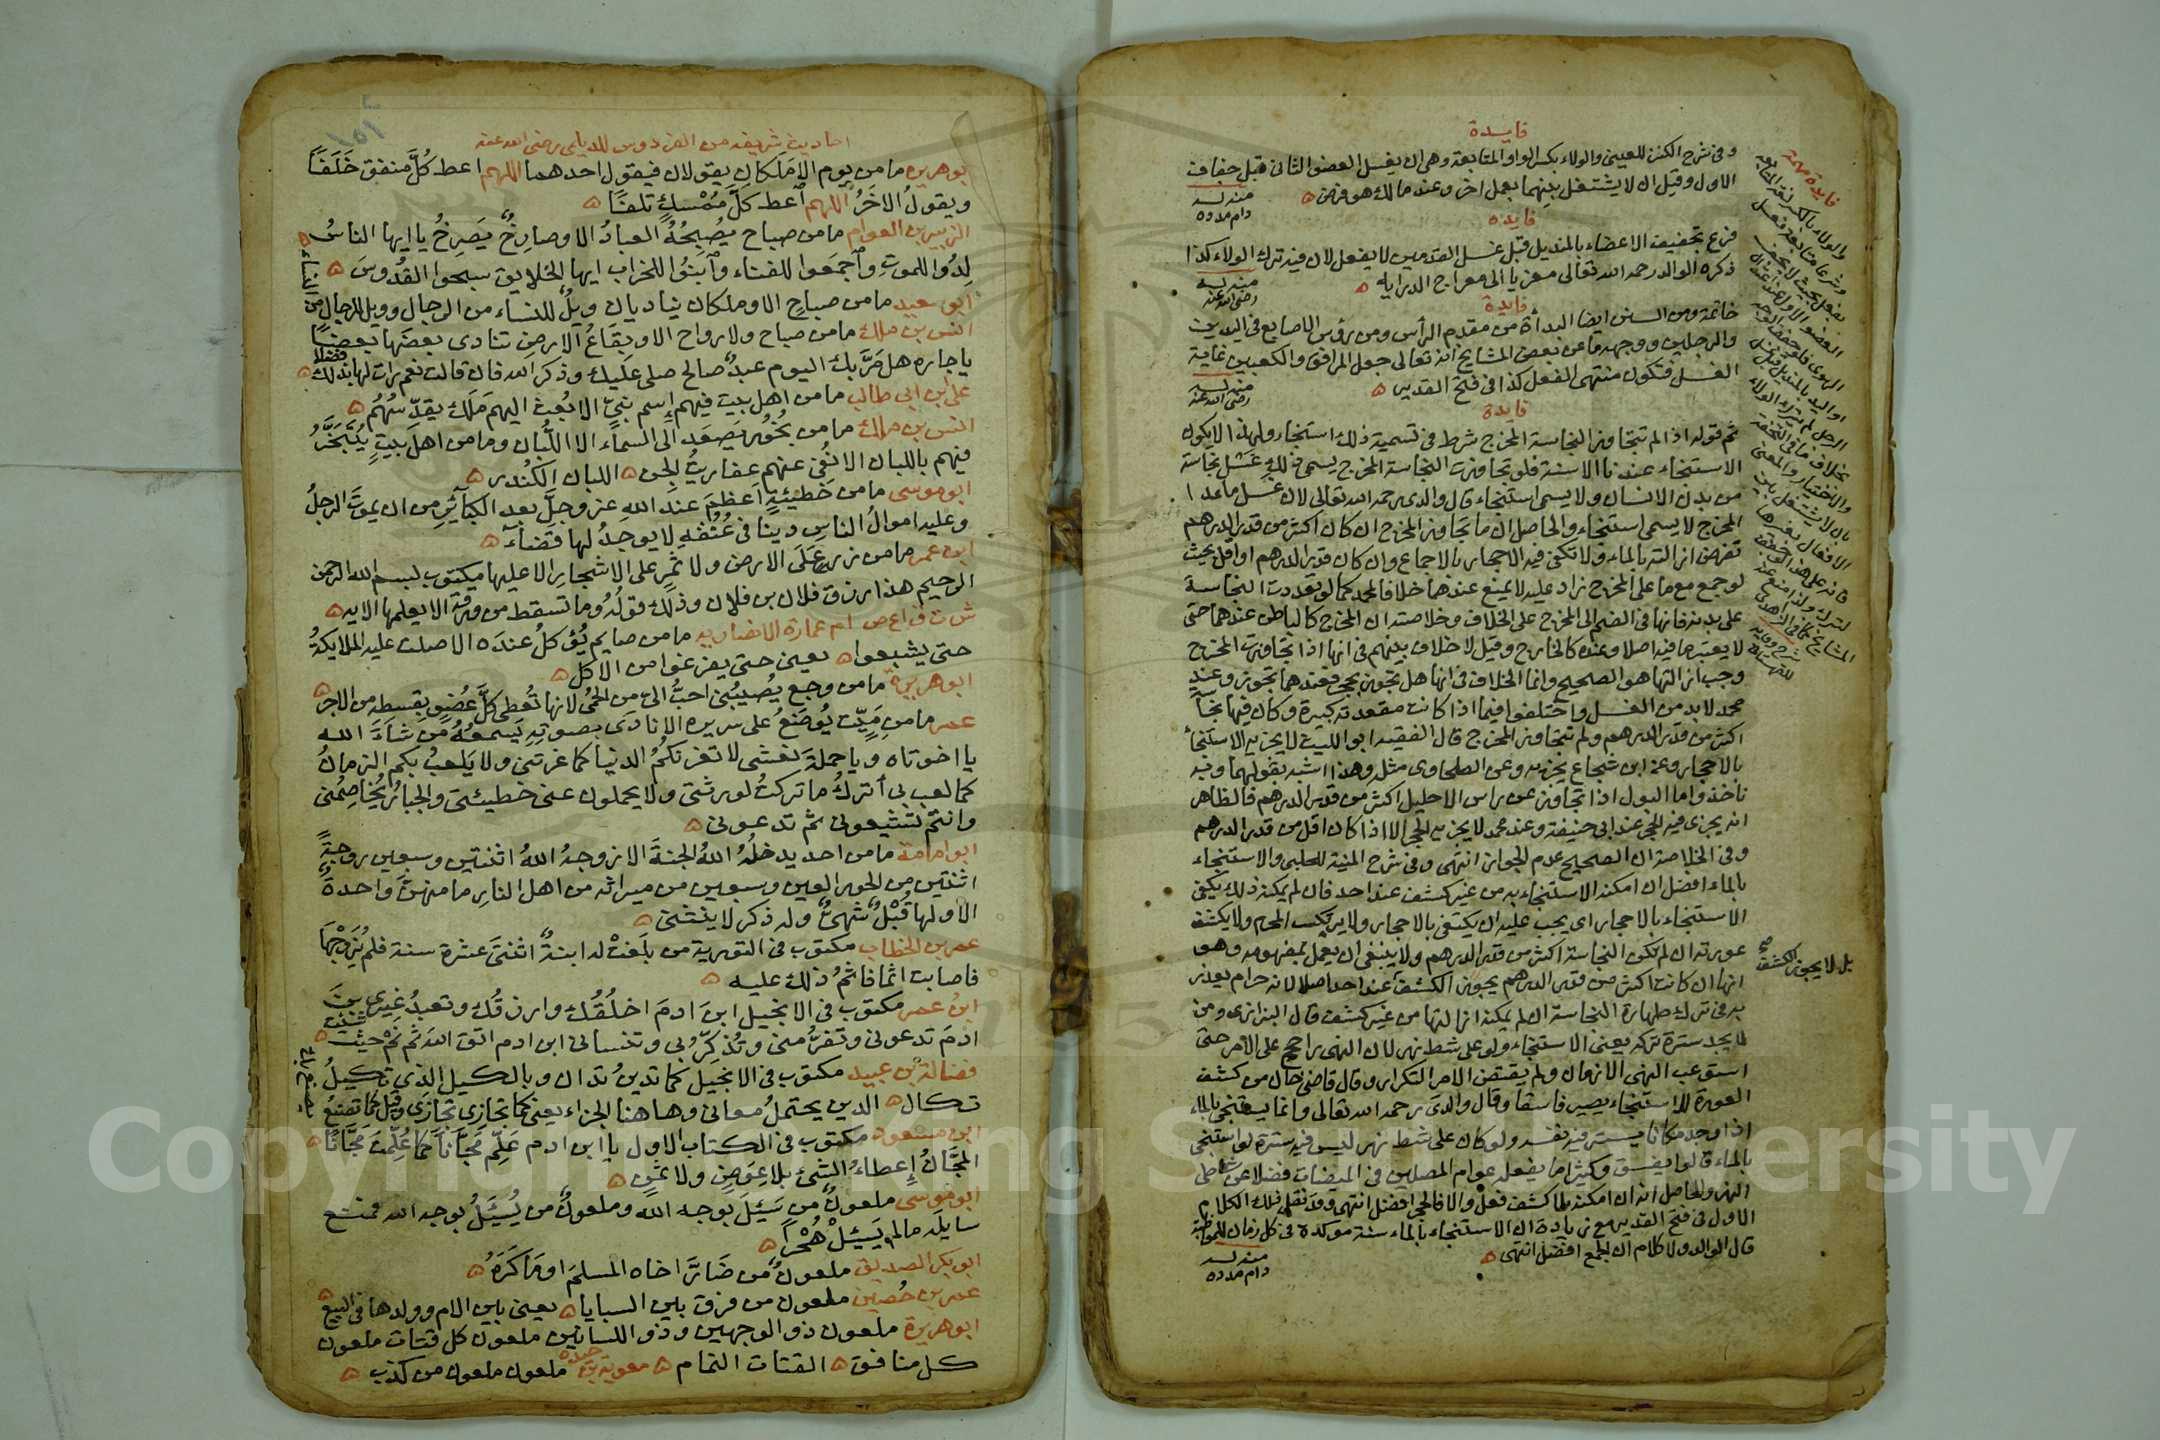 فايدة
وفي شرح الكنز للعيني والولاء بكسر الواو المتابعة وهي ان يغسل العضو الثاني قبل جفاف
الاول وقيل ان لا يشتغل بينهما بعمل اخر وعند مالك هو فرض ه
منه لسه
دام مدده
فايده
فرع تجفيف الاعضاء بالمنديل قبل غسل القدمين لا يفعل لان فيه ترك الولاء كذا
ذكره الوالد رحمه الله تعالى معزيا الى معراج الدراية ه
منه لسه
رضي الله عنه
فايدة
خاتمة ومن السنن ايضا البدأة من مقدم الرأس ومن رؤس الاصابع في اليدين
والرجلين ووجهه ما عن بعض المشايخ انه تعالى جعل المرافق والكعبين غاية
الغسل فتكون منتهى الفعل كذا في فتح القدير ه
منه لسه
رضي الله عنه
فايدة
ثم قوله اذا لم تتجاوز النجاسة المخرج شرط في تسمية ذلك استنجاء ولهذا لا يكون
الاستنجاء عندنا الا سنة فلو تجاوزت النجاسة المخرج يسمى ذلك غسل نجاسة
من بدن الانسان ولا يسمى استنجاء قال والدي رحمه الله تعالى لان غسل ما عدا
المخرج لا يسمى استنجاء والحاصل ان ما تجاوز المخرج ان كان اكثر من قدر الدرهم
تفرض ازالته بالماء ولا تكفي فيه الاحجار بالاجماع وان كان قدر الدرهم او اقل بحيث
لو جمع مع ما على المخرج زاد عليه لا يمنع عندهما خلافا لمحمد كما لو تعددت النجاسة
على بدنه فانها في الضم الى المخرج على الخلاف وخلاصته ان المخرج كالباطن عندهما حتى
لا يعتبر ما فيه اصلا وعنده كالخارج وقيل لا خلاف بينهم في انها اذا تجاوزت المخرج
وجب ازالتها هو الصحيح وانما الخلاف في انها هل تجوز بحجر فعندهما تجوز وعند
محمد لا بد من الغسل واختلفوا فيما اذا كانت مقعدته كبيرة وكان فيها نجاسة
اكثر من قدر الدرهم ولم تتجاوز المخرج قال الفقيه ابو الليث لا يجزيه الاستنجاء
بالاحجار وعن ابن شجاع يجزيه وعن الطحاوي مثله وهذا اشبه بقولهما وبه
ناخذ واما البول اذا تجاوز عن راس الاحليل اكثر من قدر الدرهم فالظاهر
انه يجزي فيه الحجر عند ابي حنيفة وعند محمد لا يجزيه الحجر الا اذا كان اقل من قدر الدرهم
وفي الخلاصة ان الصحيح عدم الجواز انتهى وفي شرح المنية للحلبي والاستنجاء
بالماء افضل ان امكنه الاستنجاء به من غير كشف عند احد فان لم يمكنه ذلك يكفي
الاستنجاء بالاحجار اي يجب عليه ان يكتفي بالاحجار ولا يرتكب المحرم ولا يكشف
عورته ان لم تكن النجاسة اكثر من قدر الدرهم ولا ينبغي ان يعمل بمفهومه وهو
انها ان كانت اكثر من قدر الدرهم يجوز الكشف عند احد اصلا لانه حرام يعذر
به في ترك طهارة النجاسة ان لم يمكنه ازالتها من غير كشف قال البزازي ومن
لم يجد سترة تركه يعني الاستنجاء ولو على شط نهر لان النهي راجح على الامر حتى
استوعب النهي الازمان ولم يقتض الامر التكرار وقال قاضي خان من كشف
العورة للاستنجاء يصير فاسقا وقال والدي رحمه الله تعالى وانما يستنجي بالماء
اذا وجد مكانا يستتر فيه نفسه ولو كان على شط نهر ليس فيه سترة لو استنجى
بالماء قالوا يفسق وكثيرا ما يفعله عوام المصلين في الميضات فضلا عن شاطئ
النهر والحاصل انه ان امكنه بلا كشف فعل والا فالحجر افضل انتهى وقد نقل ذلك الكلام
الاول في فتح القدير مع زيادة ان الاستنجاء بالماء سنة موكدة في كل زمان للمواظبة
قال الوالد ولا كلام ان الجمع افضل انتهى ه
منه لسه
دام مدده
فايدة مهمة
بل لا يجوز الكشف
صح
احاديث شريفه من الفردوس للديلمي رضي الله عنه
ابوهريره ما من يوم الا ملكان يقولان فيقول احدهما اللهم اعط كل منفق خلفا
ويقول الاخر اللهم اعط كل ممسك تلفا ه
الزبير بن العوام ما من صباح يصبحه العباد الا وصارخ يصرخ يا ايها الناس
لدوا للموت واجمعوا للفناء وابنوا للخراب ايها الخلايق سبحوا القدوس ه
ابو سعيد ما من صباح الا وملكان يناديان ويل للنساء من الرجال وويل للرجال من
النساء ه
انس بن مالك ما من صباح ولا رواح الا وبقاع الارض تنادى بعضها بعضا
يا جاره هل مر بك اليوم عبد صالح صلى عليك وذكر الله فان قالت نعم رات لها بذلك فضلا ه
علي بن ابي طالب ما من اهل بيت فيهم اسم نبي الا بعث اليهم ملك يقدسهم ه
انس بن مالك ما من بخور يصعد الى السماء الا اللبان وما من اهل بيت يتبخر
فيهم باللبان الا نفى عنهم عفاريت الجن ه اللبان الكندر ه
ابو موسى ما من خطيئة اعظم عند الله عز وجل بعد الكبائر من ان يموت الرجل
وعليه اموال الناس دينا في عنقه لا يوجد لها قضاء ه
ابن عمر ما من زرع على الارض ولا ثمر على الاشجار الا عليها مكتوب بسم الله الرحمن
الرحيم هذا رزق فلان بن فلان وذلك قوله وما تسقط من ورقة الا يعلمها الايه ه
ام عمارة الانصاريه ما من صايم يؤكل عنده الا صلت عليه الملايكة
حتى يشبعوا ه يعني حتى يفرغوا من الاكل ه
ابو هريرة ما من وجع يصيبني احب الي من الحمى لانها تعطي كل عضو بقسطه من الاجر ه
عمر ما من ميت يوضع على سريره الا نادى بصوته يسمعه من شاء الله
يا اخوتاه ويا حملة نعشي لا تغرنكم الدنيا كما غرتني ولا يلعب بكم الزمان
كما لعب بي اترك ما تركت لورثتي ولا يحملون عني خطيئتي والجبار يخاصمني
وانتم تشيعوني ثم تدعوني ه
ابو امامة ما من احد يدخله الله الجنة الا زوجه الله اثنتين وسبعين زوجة
اثنتين من الحور العين وسبعين من ميراثه من اهل النار ما منهن واحدة
الا ولها قبل شهي وله ذكر لا ينثني ه
عمر بن الخطاب مكتوب في التورية من بلغت له ابنة اثنتى عشرة سنة فلم يزوجها
فاصابت اثما فاثم ذلك عليه ه
ابن عمر مكتوب في الانجيل ابن ادم اخلقك وارزقك وتعبد غيري بن
ادم تدعوني وتفر مني وتذكر بي وتنساني ابن ادم اتق الله ثم نم حيث شئت ه
فضالة بن عبيد مكتوب في الانجيل كما تدين تدان وبالكيل الذي تكيل
تكال ه الدين يحتمل معاني وهاهنا الجزاء يعني كما تجازي تجازى وقيل كما تصنع
يصنع بك
ابن مسعود مكتوب في الكتاب الاول يا ابن ادم علم مجانا كما علمت مجانا ه
المجان اعطاء الشئ بلا عوض ولا ثمن ه
ابو موسى ملعون من سئل بوجه الله وملعون من يسئل بوجه الله فمنع
سايله مالم يسئل هجرا ه
ابو بكر الصديق ملعون من ضار اخاه المسلم او ماكره ه
عمر بن حصين ملعون من فرق بين السبايا ه يعني بين الام وولدها في البيع ه
ابو هريرة ملعون ذو الوجهين وذو اللسانين ملعون كل قتات ملعون
كل منافق ه القتات النمام ه معوية بن حيدة ملعون ملعون من كذب ه
Copyright © King Saud University
1957